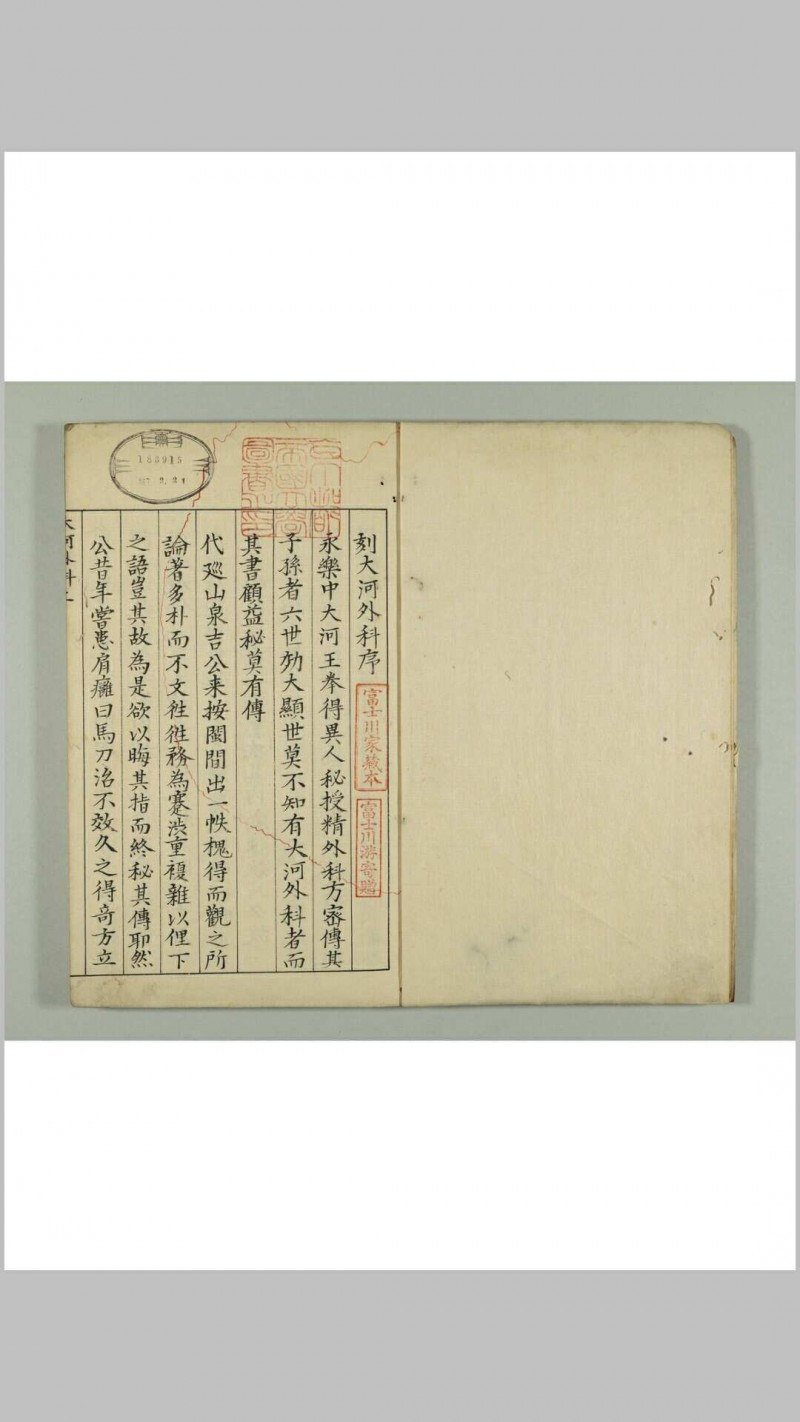 刻大河外科序
富士川家藏本
富士川游寄贈
永樂中大河王拳得異人秘授精外科方審傳其
子孫者六世効大顯世莫不知有大河外科者而
其書顧益秘莫有傳
代廵山泉吉公来按閩間出一帙槐得而觀之所
論著多朴而不文徃徃務為蹇澁重複雜以俚下
之語豈其故為是欲以晦其指而終秘其傳耶然
公昔年嘗患肩癰曰馬刀治不效久之得竒方立
大河外科上
188915